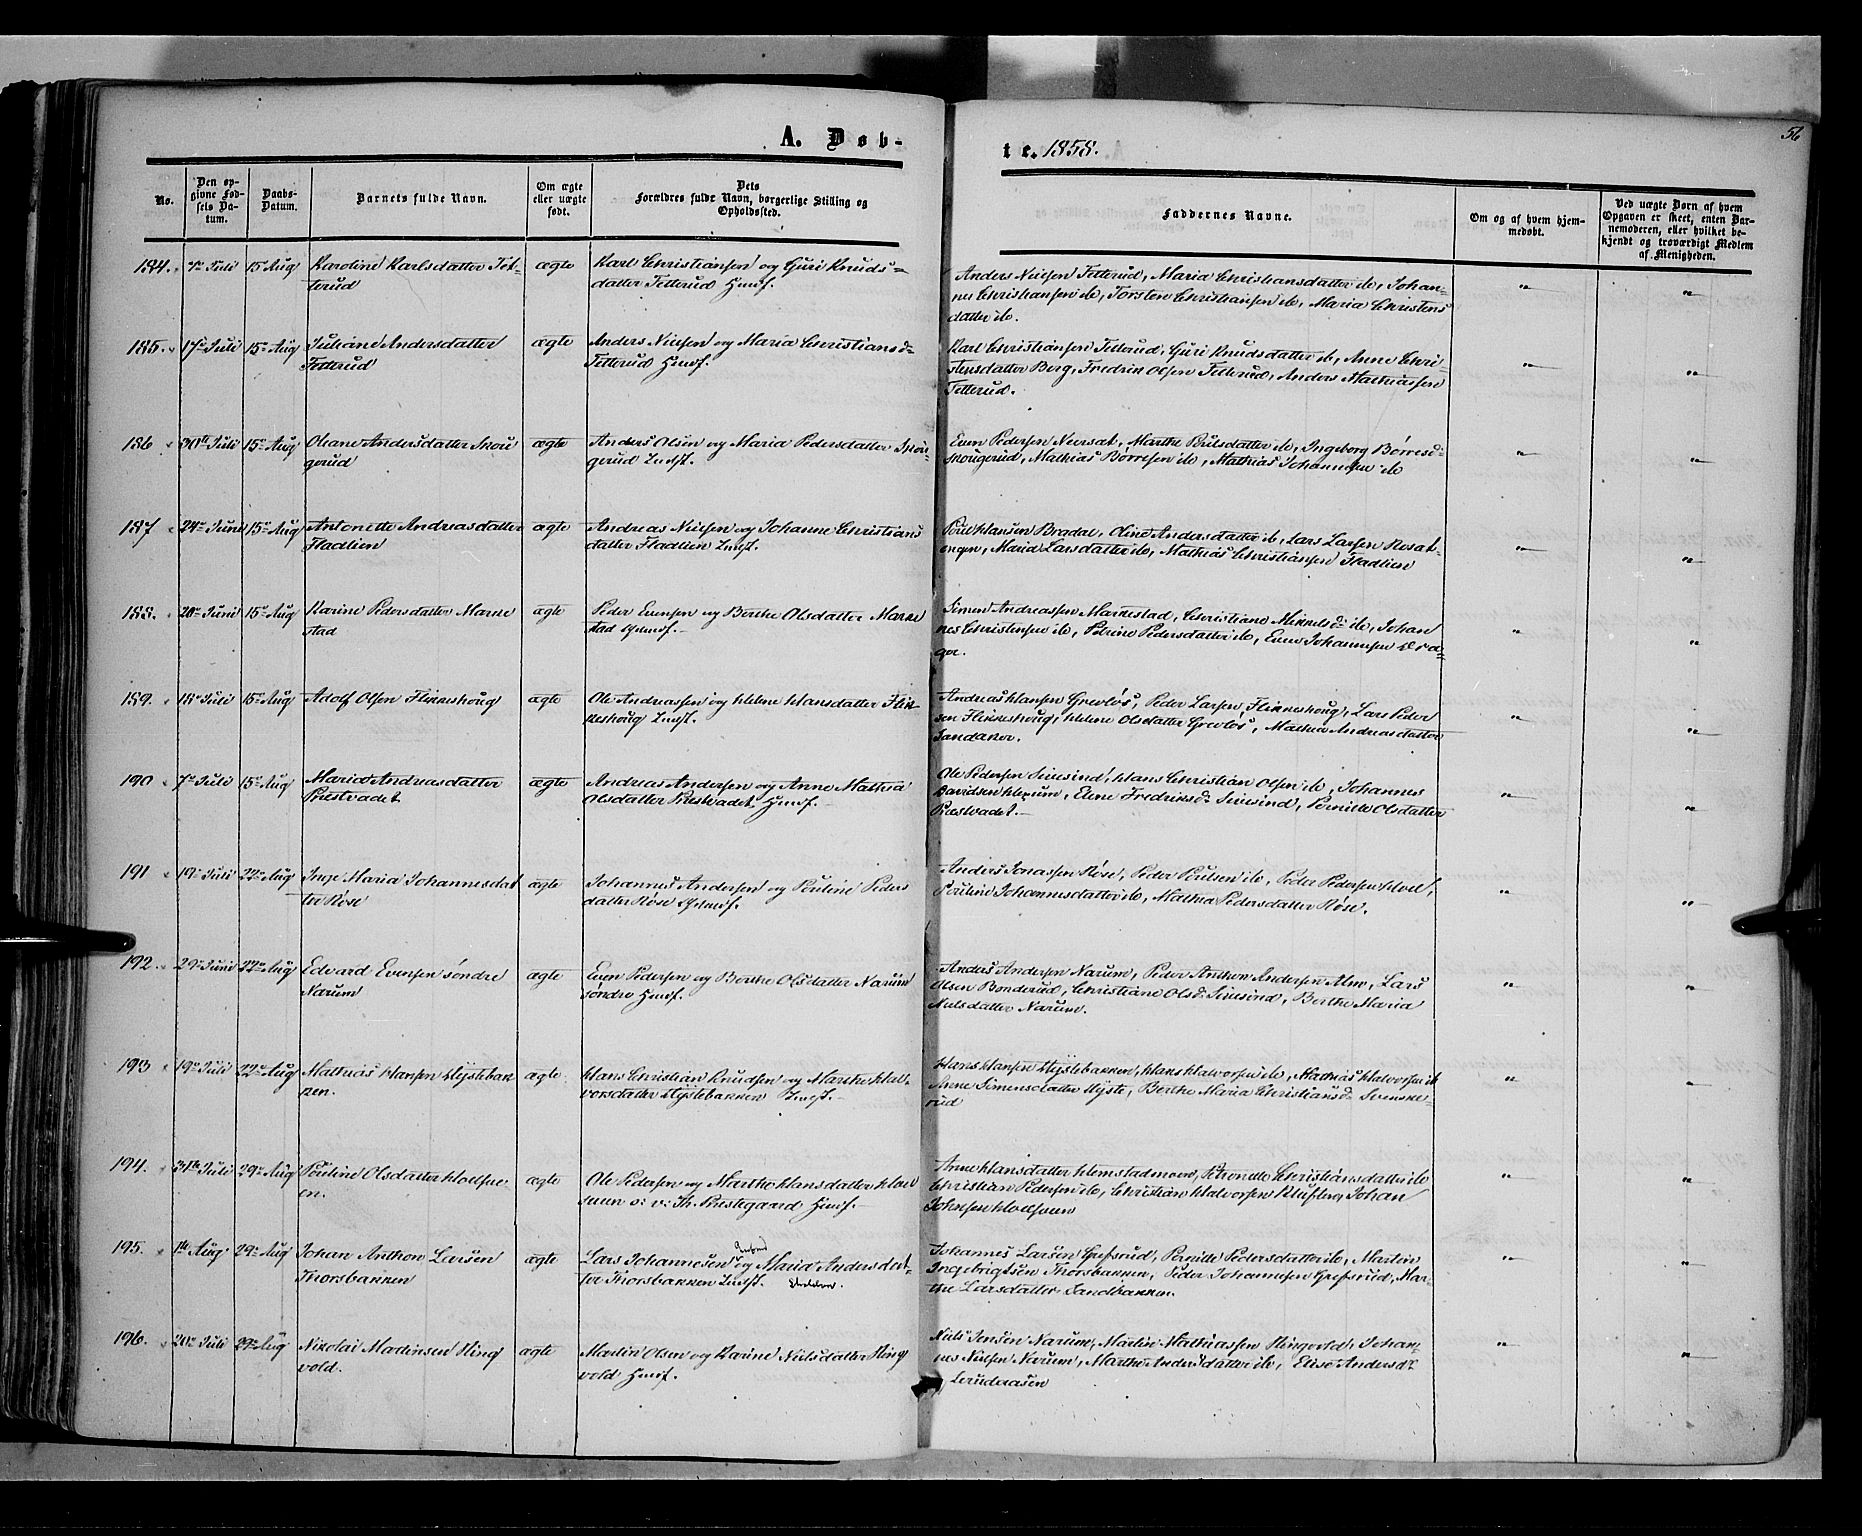 56
A. Døb-
te. 1858.
No.
Den op-
givne Fød-
sels Da-
tum.
Daabs-
Datum.
Barnets fulde Navn.
Om ægte
eller uægte
født.
Dets
Forældres fulde Navn, borgerlige Stilling og
Opholdssted.
Faddernes Navne.
Om og af hvem hjem-
medøbt.
Ved uægte Børn af hvem
Opgaven er skeet, enten Bar-
nemoderen, eller hvilket be-
kjendt og troværdigt Medlem
af Menigheden.
184. Juli 15 Aug Karoline Karlsdatter Tet-
terud
ægte
Karl Christiansen og Guri Knuds-
datter Tetterud Huusf.
Anders Nielsen Tetterud, Maria Christiansdatter ib, Johan-
nes Christiansen ib, Torsten Christiansen ib, Maria Christens
datter ib.
185. 17de Juli 15de Aug Juliane Andersdatter
Tetterud
ægte
Anders Nielsen og Maria Christiansd=
Tetterud Huusf.
Karl Christiansen Tetterud, Guri Knudsdatter ib, Anne Chri-
stensdatter Berg, Fredrik Olsen Tetterud, Anders Mathiassen
Tetterud.
186 30te Juli 15de Aug Oleane Andersdatter Skou
gerud
ægte
Anders Olsen og Maria Pedersdatter Skou-
gerud Indst.
Even Pedersen Marthe ib, Ingeborg Børresd=
Skougerud, Mathias Børresen ib, Mathias Johannesen ib
187 24de Juni 15de Aug Antonette Andreasdatter
Fladlien
ægte
Andreas Nielsen og Johanne Christians
datter Fladlien Indst.
Poul Hansen Bradal, Oline Andersdatter ib, Lars Larsen
engen, Maria Larsdatter ib, Mathias Christiansen Fladlien
188. 20de Juni 15de Aug Karine Pedersdatter Marke
stad
ægte
Peder Evensen og Berthe Olsdatter Marke
stad
Simen Andreassen Markestad, Christiane Mikkelsd= ib, Johan
nes Christensen ib, Petrine Pedersdatter ib, Even Johannesen Kra-
ger.
189. 18de Juli 15de Aug Adolf Olsen Flikkeshoug
ægte
Ole Andreassen og Helene Hansdatter Flik
keshoug Indst.
Andreas Hansen Grevløs, Peder Larsen Flikkeshoug, Lars Peder
sen Flikkeshoug, Helene Olsdatter Grevløs, Mathea Andreasdatter
Sandaker.
190 7de Juli 15de Aug Maria Andreasdatter
Præstvadet
ægte
Andreas Andersen og Anne Mathea
Olsdatter Præstvadet Huusf.
Ole Pedersen Sivesind, Hans Christian Olsen ib, Johannes
Davidsen Hærum, Elene Fredriksd= Sivesind, Pernille Olsdatter
Præstvadet.
191 19de Juli 22de Aug Inge Maria Johannesdat
ter Røise
ægte
Johannes Andersen og Pouline Peders
datter Røise
Anders Jonassen Røise, Peder Poulsen ib, Peder Pedersen Hoel,
Pouline Johannesdatter ib, Mathea Pedersdatter Røise.
192. 29de Juni 22de Aug Edvard Evensen søndre
Narum
ægte
Even Pedersen og Berthe Olsdatter Narum
søndre Huusf.
Anders Andersen Narum, Peder Anthon Andersen Alm, Lars
Olsen Bonderud, Christiane Olsd= Sivesind, Berthe Maria
Nielsdatter Narum.
193 19de Juli 22de Aug Mathias Hansen Hystebak
ken.
ægte
Hans Christian Knudsen og Marthe Hal-
vorsdatter Hystebakken Indst.
Hans Hansen Hystebakken, Hans Halvorsen ib, Mathias Halvorsen ib
Anne Simensdatter Hyste, Berthe Maria Christiansd= Svenske-
rud
194. 31te Juli 29de Aug Pouline Olsdatter
en.
ægte
Ole Pedersen og Marthe Hansdatter Hoel
Præstegaard Huusf.
Anne Hansdatter Hemstadmoen, Petronelle Christiansdatter ib
Christian Pedersen ib, Christian Halvorsen Johan
Johnsen
195. 1te Aug 29de Aug Johan Anthon Larsen
Thorsbakken
ægte
Lars Johannesen og Maria Andersdat-
ter Thorsbakken Indst.
Johannes Larsen Grefsrud, Pernille Pedersdatter ib, Martin
Ingebrigtsen Thorsbakken, Peder Johannesen Grefsrud, Mar-
the Larsdatter Sandbakken.
196. 20de Juli 29de Aug Nikolai Martinsen Ring
vold.
ægte
Martin Olsen og Karine Nielsdatter Ring
vold Huusf.
Niels Jensen Narum, Martin Mathiassen Ringvold, Johan-
nes Nielsen Narum, Marthe Andersdatter ib, Elise Andersd=